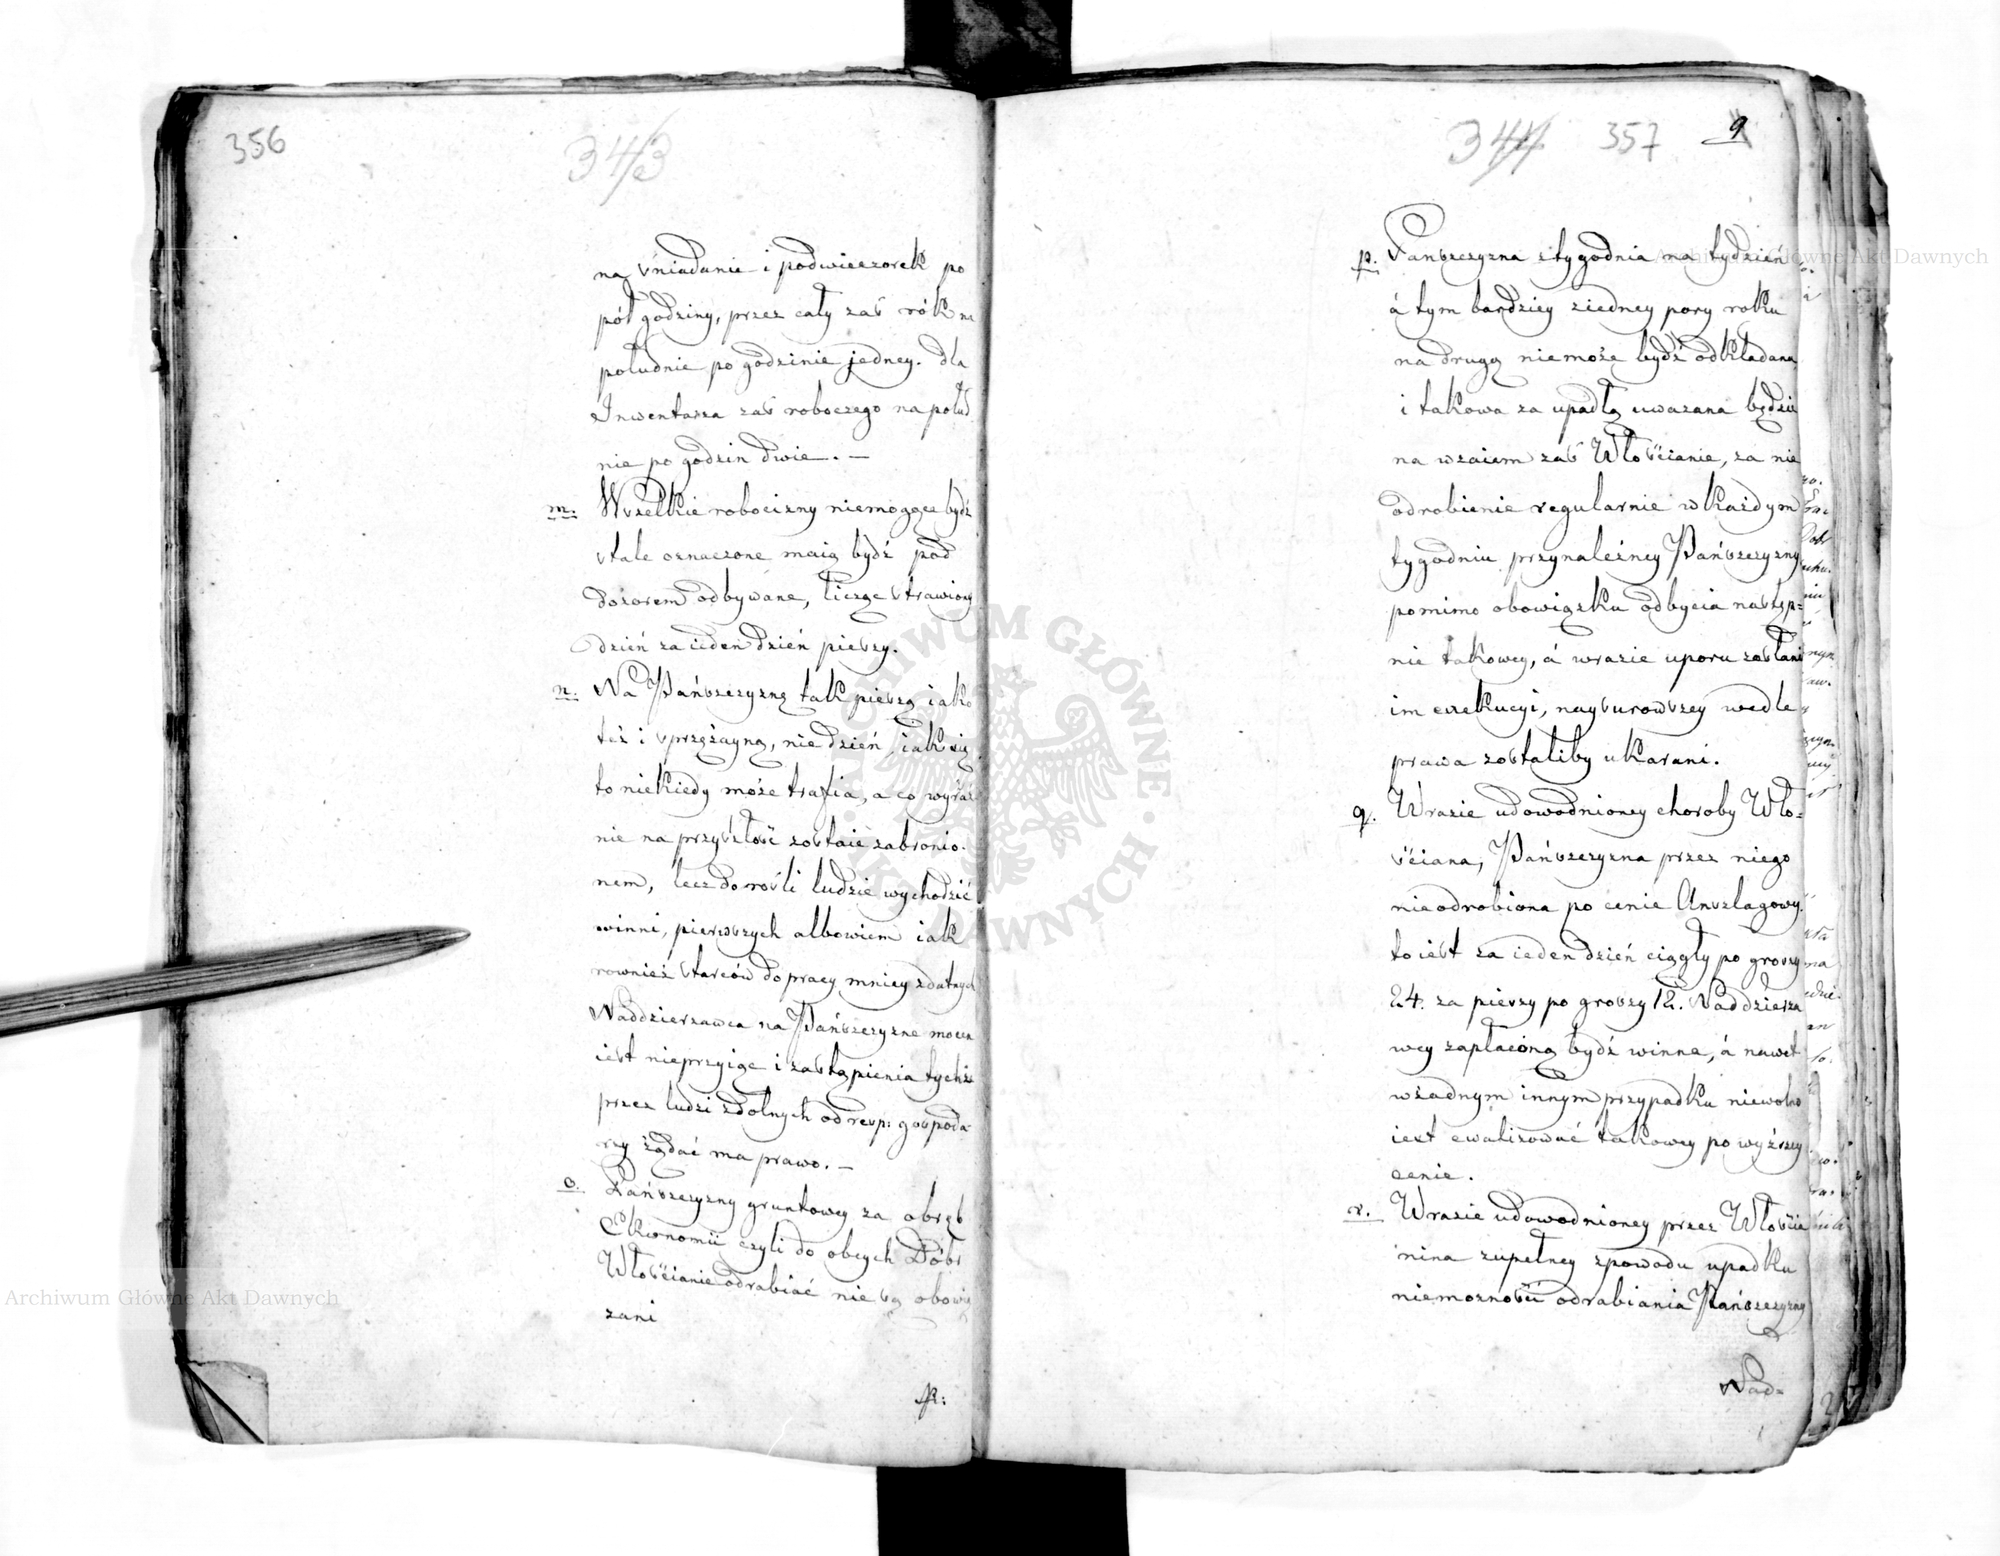 356
343
na śniadanie i podwieczorek po
pół godziny, przez cały zaś rók na
południe po godzinie jedney. dla
Inwentarza zaś roboczego na połud
nie po godzin dwie. —
m. Wszelkie robocizny niemogące bydź
stale oznaczone maią bydź pod
dozorem odbywane, licząc strawiony
dzień za ieden dzień pieszy.
n. Na Pańszczyznę tak pieszą iako
też i sprzężayną, nie dzień iak się
to niekiedy może trafia, a co wyraź
nie na przyszłość zostaie zabronio-
nem, lecz dorośli ludzie wychodzić
winni, pierwszych albowiem iak
rownież starców do pracy mniey zdatnych
Naddzierzawca na Pańszczyzne mocen
iest nieprzyiąć i zastąpienia tychże
przez ludzi zdolnych od resp: gospoda
rzy żądać ma prawo. —
o. Pańszczyzny gruntowey za obręb
Ekonomii czyli do obcych Dóbr
Włościanie odrabiać nie są obowią
zani
p:
344 357 9
p. Panszczyzna z tygodnia na tydzień
á tym bardziey ziedney pory roku
na drugą niemoże bydź odkładana,
i takowa za upadłą uwazana będzie
na wzaiem zaś Włościanie, za nie
odrobienie regularnie w każdym
tygodniu przynależney Pańszczyzny
pomimo obowiązku odbycia następ=
nie takowey, á wrazie uporu zesłani
im exekucyi, naysurowszey wedle
prawa zostaliby ukarani.
q. W razie udowodnioney choroby Wło=
ściana, Pańszczyzna przez niego
nieodrobiona po cenie Anszlagowy.
to iest za ieden dzień ciągły po groszy
24. za pieszy po groszy 12. Naddzierza
wcy zapłaconą bydź winna, á nawet
wżadnym innym przypadku niewolno
iest ewalizować takowey po wyższey
cenie.
r. W razie udowodnioney przez Włościa
nina zupełney zpowodu upadku
niemozności odrabiania Pańszczyzny
Nad=
Archiwum Główne Akt Dawnych
Archiwum Główne Akt Dawnych
ARCHIWUM GŁÓWNE AKT DAWNYCH